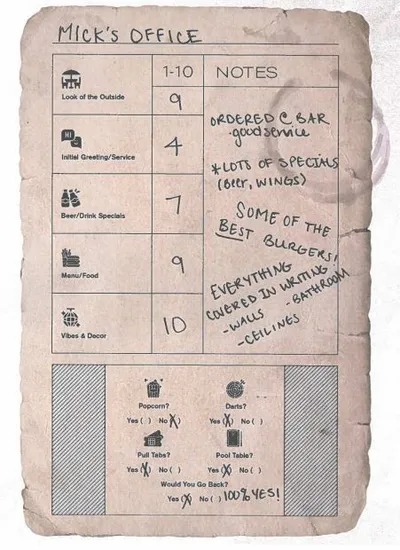 MICK'S OFFICE
1-10 NOTES
Look of the Outside 9
Initial Greeting/Service 4
Beer/Drink Specials 7
Menu/Food 9
Vibes & Decor 10
ORDERED @ BAR
-good service
*LOTS OF SPECIALS
(Beer, WINGS)
SOME OF THE
BEST BURGERS!
EVERYTHING
COVERED IN WRITING!
-WALLS -BATHROOM
-CEILINGS
HI
Popcorn? Darts?
Yes ( ) No (X) Yes (X) No ( )
Pull Tabs? Pool Table?
Yes (X) No ( ) Yes (X) No ( )
Would You Go Back?
Yes (X) No ( ) 100% YES!